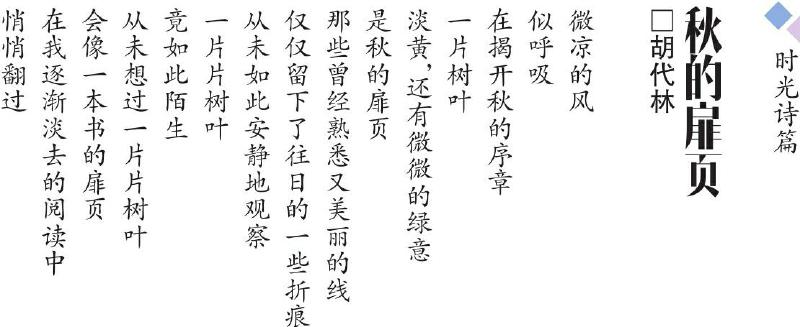 时光诗篇
秋的扉页
□胡代林
微凉的风
似呼吸
在揭开秋的序章
一片树叶
淡黄,还有微微的绿意
是秋的扉页
那些曾经熟悉又美丽的线
仅仅留下了往日的一些折痕
从未如此安静地观察
一片片树叶
竟如此陌生
从未想过一片片树叶
会像一本书的扉页
在我逐渐淡去的阅读中
悄悄翻过